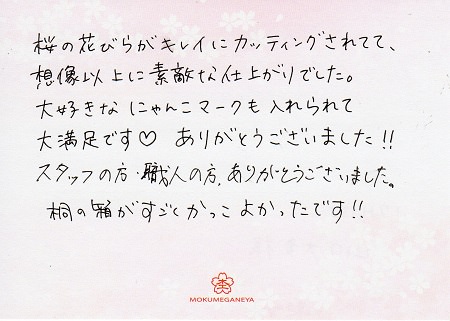 桜の花びらがキレイにカッティングされてて、
想像以上に素敵な仕上がりでした。
大好きな にゃんこマークも入れられて
大満足です♡ ありがとうございました!!
スタッフの方・職人の方、ありがとうございました。
桐の箱がすごくかっこよかったです!!
杢
MOKUMEGANEYA